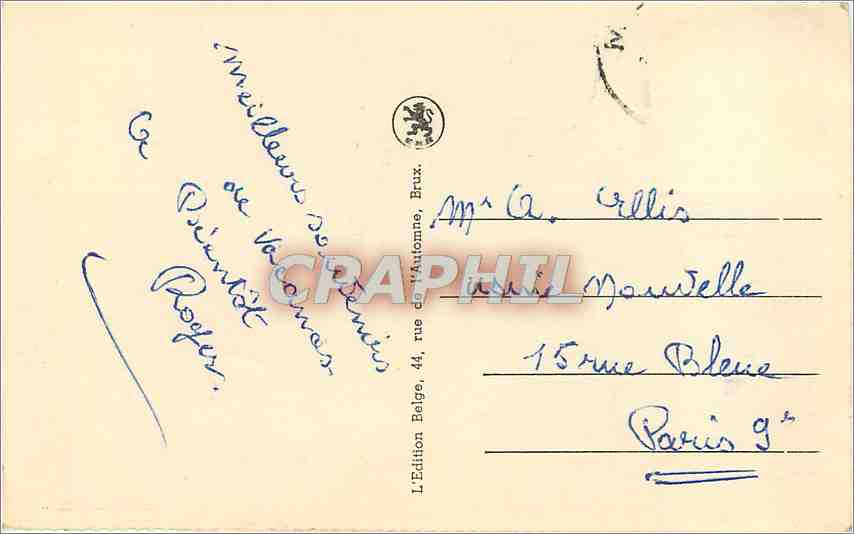 meilleurs souvenirs
de vacances
A Bientôt
Roger.
L'Edition Belge, 44, rue de l'Automne, Brux.
Mr A. Ellis
Nouvelle
15 rue Bleue
Paris 9e
CRAPHIL